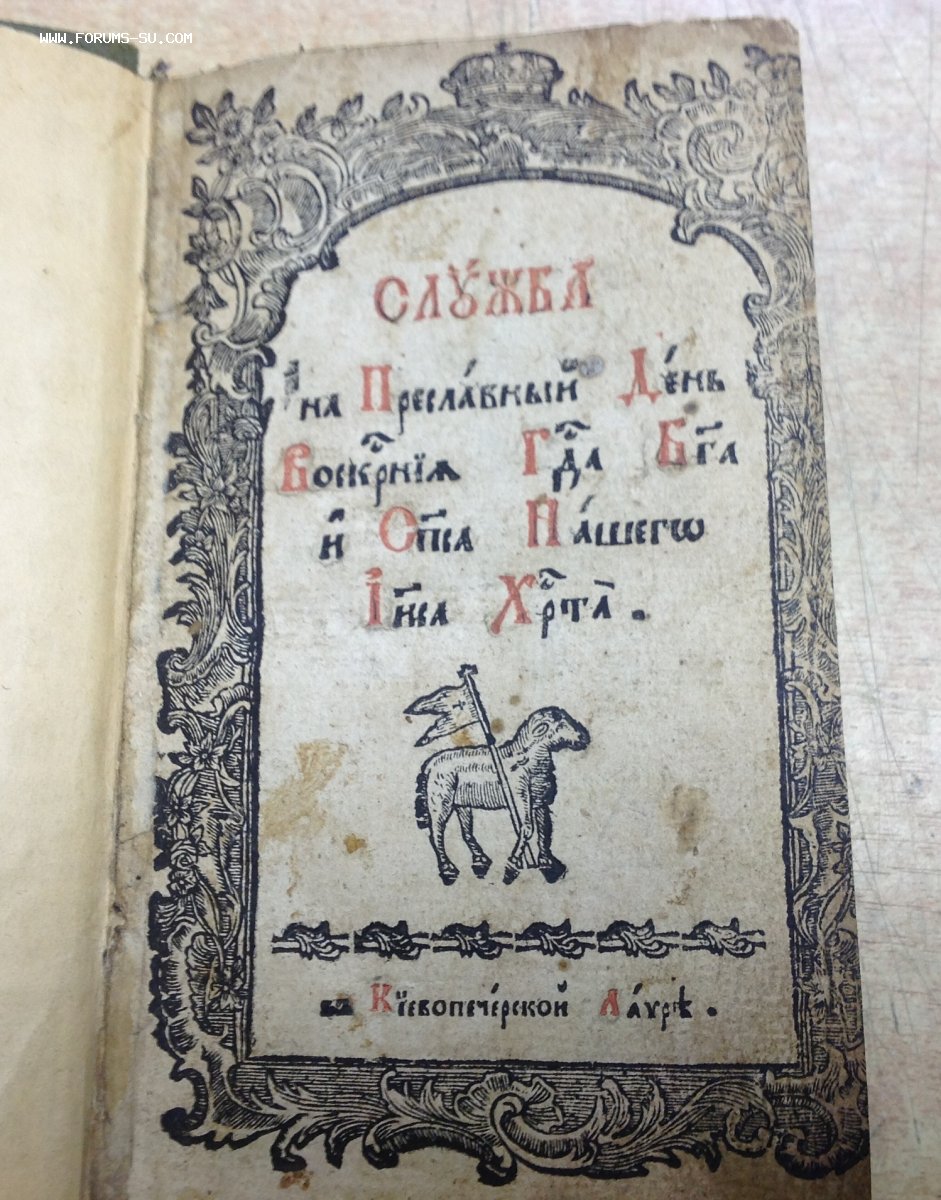 WWW.FORUMS-SU.COM
СЛꙊ́ЖБА̀
на Пресла́вный Де́нь
Воскр҃нїѧ Гд҃а Бг҃а
и҆ Сп҃са На́шегѡ
І҆и҃са Хрⷭ҇та̀ .
въ Кїевопече́рской Ла́ѵрѣ .